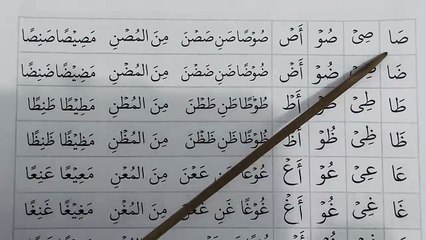 صَا صِيْ صُوْ أَصْ صُوْصًا صَنِ صَصْنَ مِنَ الْمُصْنِ مَصِيْصًا صَنِصًا
ضَا ضُوْ أَضْ ضُوْضًا ضَنِ ضَضْنَ مِنَ الْمُضْنِ مَضِيْضًا ضَنِضًا
طَا طِيْ طُوْ أَطْ طُوْطًا طَنِ طَطْنَ مِنَ الْمُطْنِ مَطِيْطًا طَنِطًا
ظَا ظِيْ ظُوْ أَظْ ظُوْظًا ظَنِ ظَظْنَ مِنَ الْمُظْنِ مَظِيْظًا ظَنِظًا
عَا عِيْ عُوْ أَعْ عُوْعًا عَنِ عَعْنَ مِنَ الْمُعْنِ مَعِيْعًا عَنِعًا
غَا غِيْ غُوْ أَغْ غُوْغًا غَنِ غَغْنَ مِنَ الْمُغْنِ مَغِيْغًا غَنِغًا